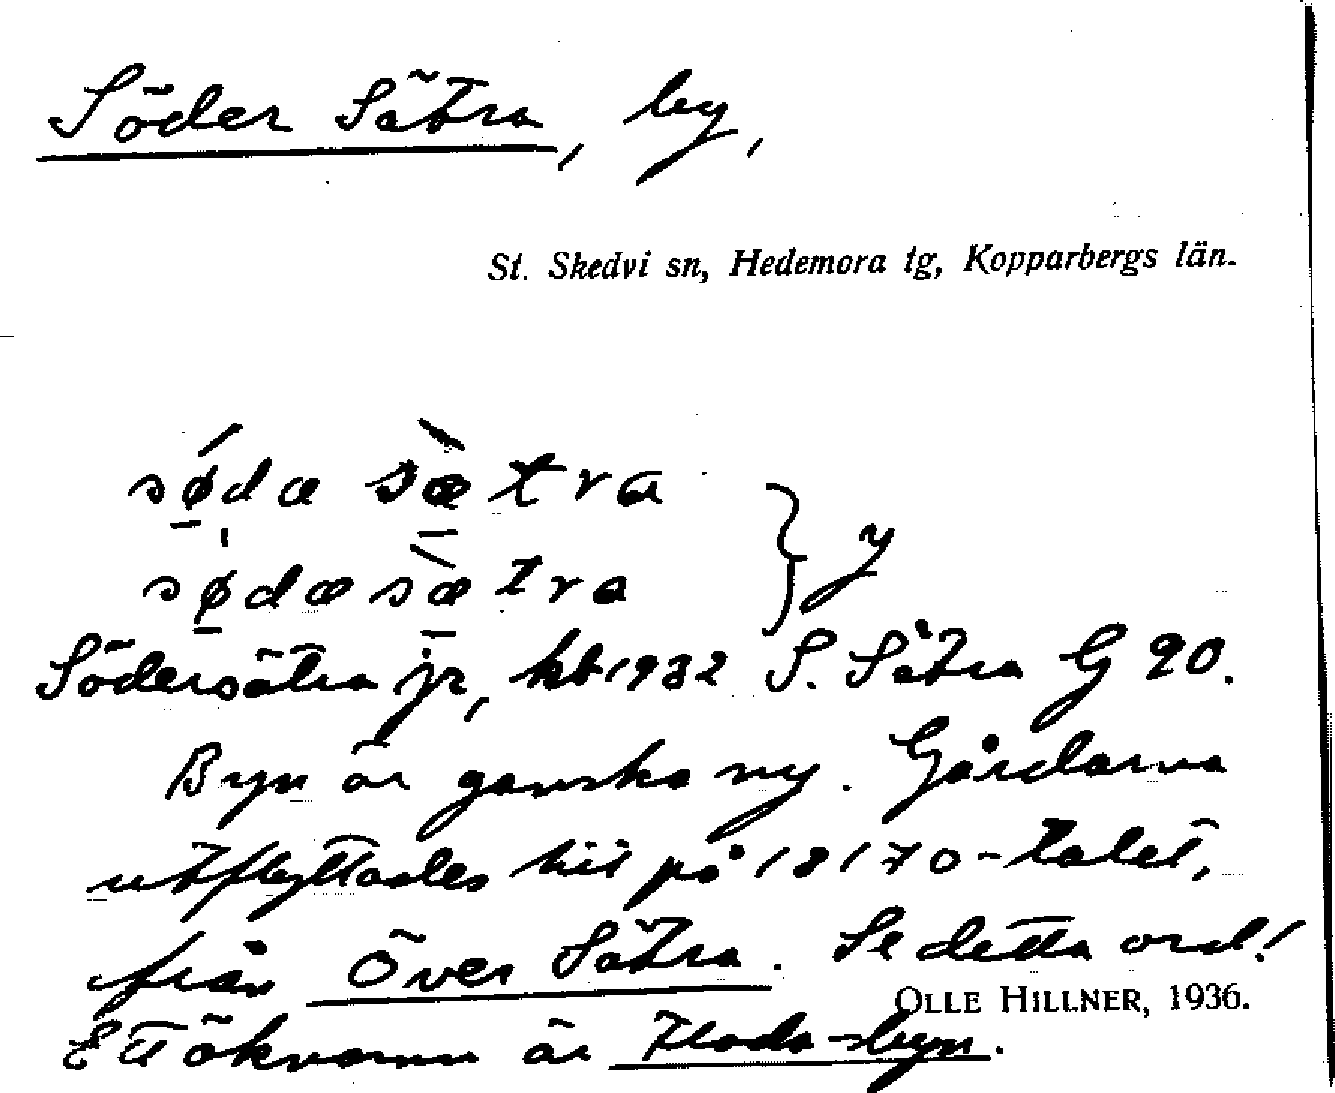 Söder Sätra, by,
St. Skedvi sn, Hedemora tg, Kopparbergs län.
sǿ̱dæ sæ̱̀tra
sǿ̱dæsæ̱̀tra } y
Södersätra jr, kb 1932 S. Sätra G 90.
Byn är ganska ny. Gårdarna
utflyttades hit på 1870-talet,
från Över Sätra. Se detta ord!
OLLE HILLNER, 1936.
Ett öknamn är Floda-byn.